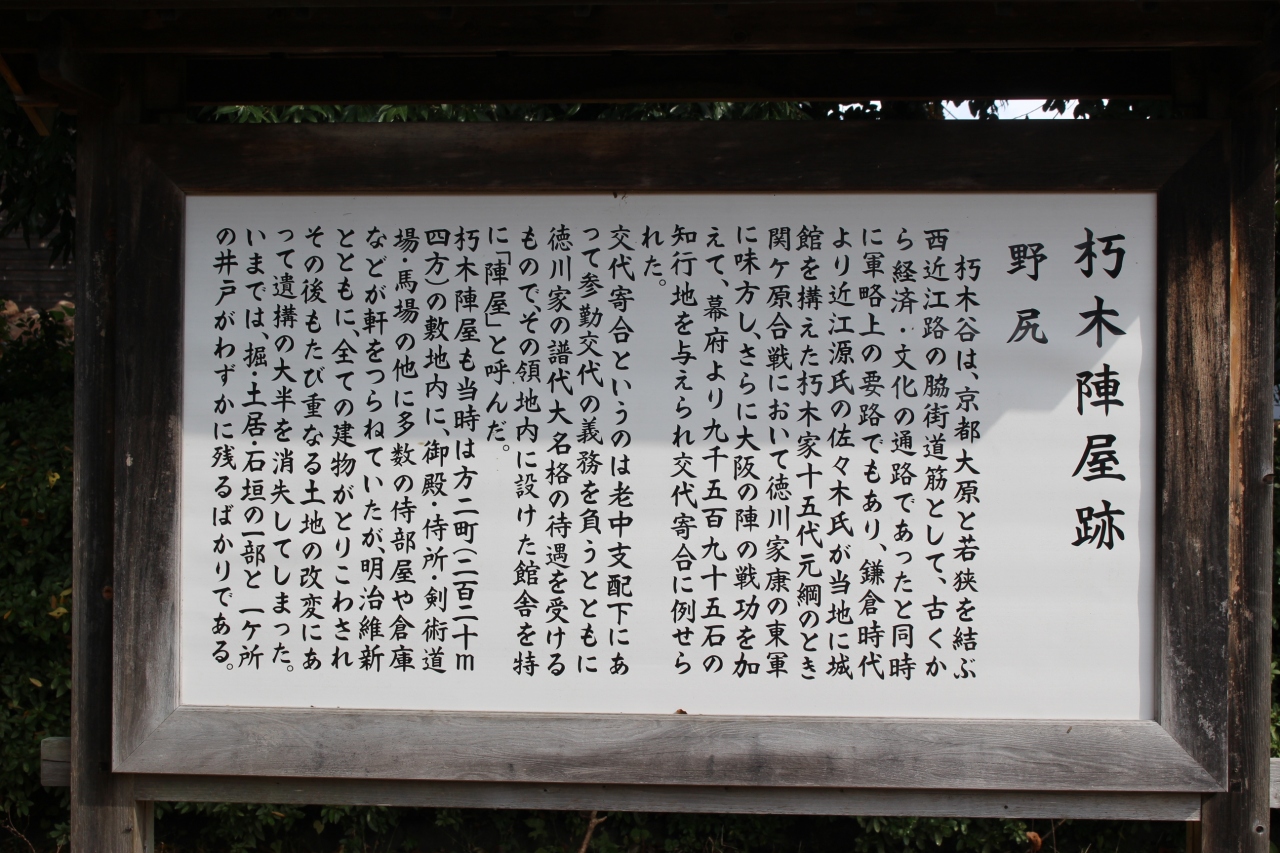 朽木陣屋跡
野尻
朽木谷は、京都大原と若狭を結ぶ
西近江路の脇街道筋として、古くか
ら経済・文化の通路であったと同時
に軍略上の要路でもあり、鎌倉時代
より近江源氏の佐々木氏が当地に城
館を構えた朽木家十五代元綱のとき
関ケ原合戦において徳川家康の東軍
に味方し、さらに大阪の陣の戦功を加
えて、幕府より九千五百九十五石の
知行地を与えられ交代寄合に例せら
れた。
交代寄合というのは老中支配下にあ
って参勤交代の義務を負うとともに
徳川家の譜代大名格の待遇を受ける
もので、その領地内に設けた館舎を特
に「陣屋」と呼んだ。
朽木陣屋も当時は方二町(二百二十m
四方)の敷地内に、御殿・侍所・剣術道
場・馬場の他に多数の侍部屋や倉庫
などが軒をつらねていたが、明治維新
とともに、全ての建物がとりこわされ
その後もたび重なる土地の改変にあ
って遺構の大半を消失してしまった。
いまでは、掘・土居・石垣の一部と一ケ所
の井戸がわずかに残るばかりである。